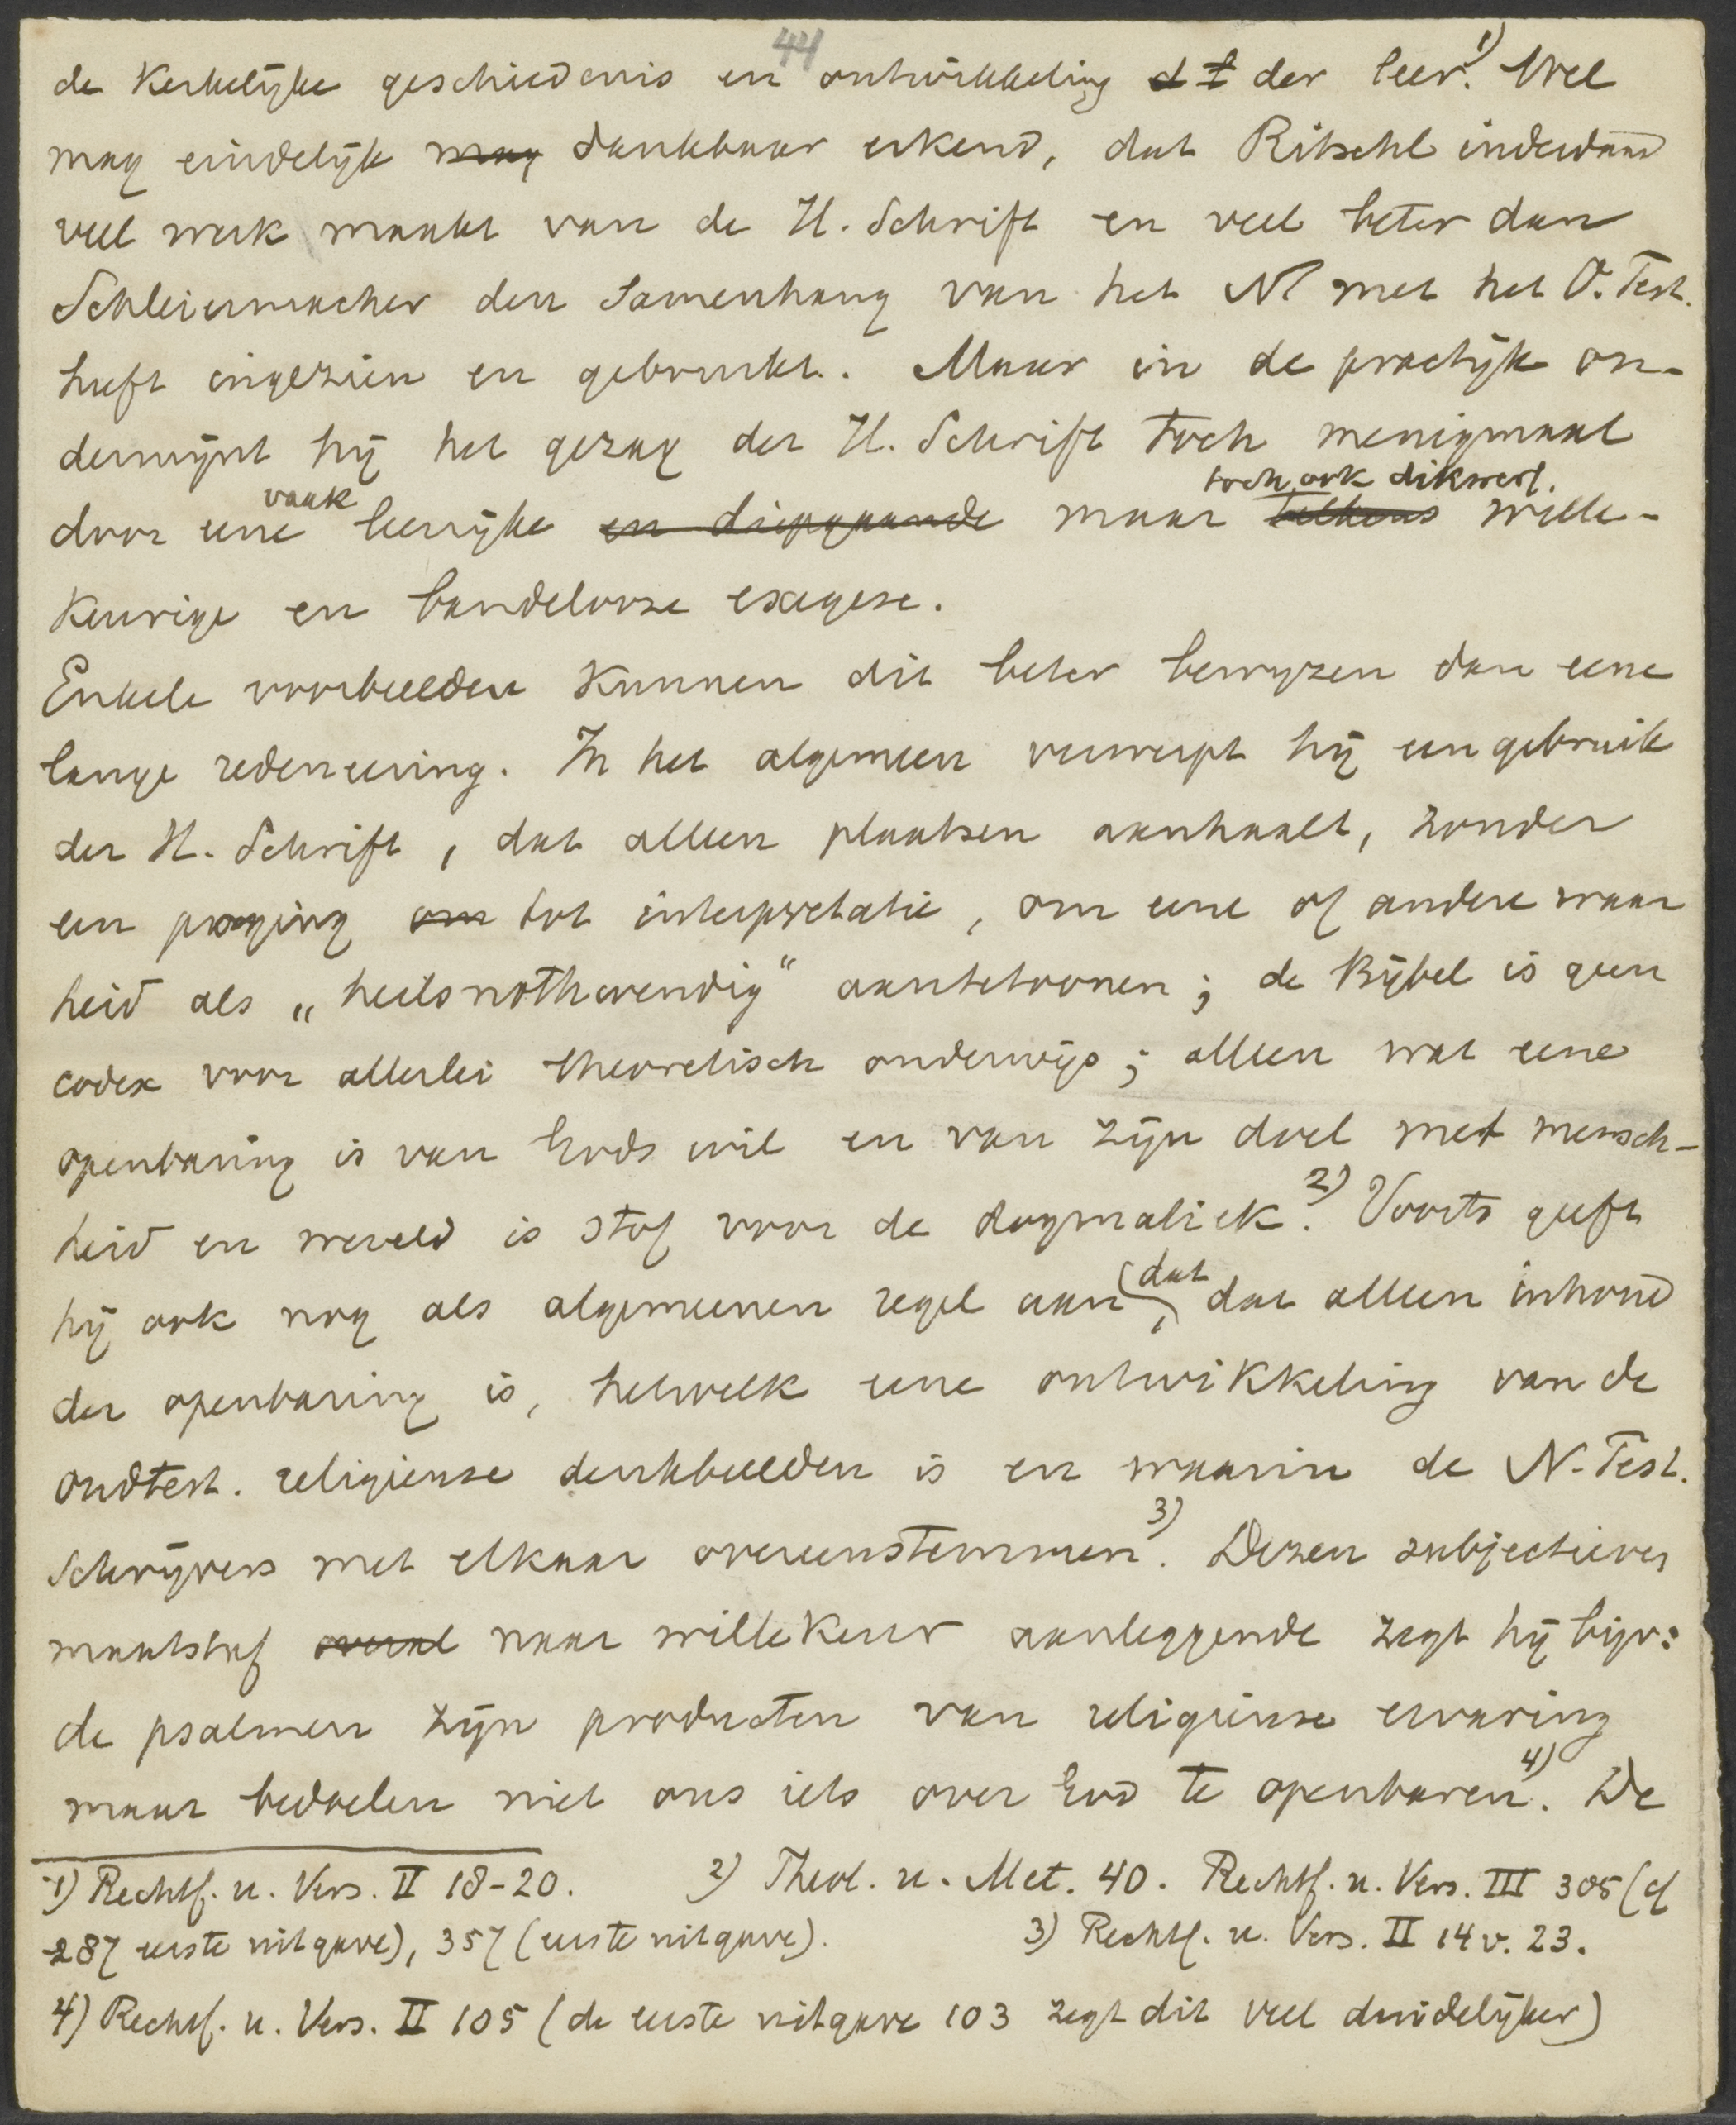 44
de Kerkelijke geschiedenis en ontwikkeling d t der leer.1) Wel
mag eindelijk mag dankbaar erkend, dat Ritschl inderdaad
veel werk maakt van de H. Schrift en veel beter dan
Schleiermacher den Samenhang van het NT met het O. Test.
heeft ingezien en gebruikt. Maar in de practijk on-
dermijnt hij het gezag der H. Schrift toch menigmaal
vaak toch ook dikwerf.
door eene leerrijke en diepgaande maar telkens wille-
keurige en bandelooze exegese.
Enkele voorbeelden kunnen dit beter bewijzen dan eene
lange redeneering. In het algemeen verwerpt hij een gebruik
der H. Schrift, dat alleen plaatsen aanhaalt, zonder
een poging om tot interpretatie, om eene of andere waar
heid als „heilsnothwendig“ aantetoonen; de Bijbel is geen
codex voor allerlei theoretisch onderwijs; alleen wat eene
openbaring is van Gods wil en van zijn doel met mensch-
heid en wereld is stof voor de dogmatiek.2) Voorts geeft
hij ook nog als algemeenen regel aan, dat dat alleen inhoud
der openbaring is, hetwelk eene ontwikkeling van de
oudtest. religieuse denkbeelden is en waarin de N. Test.
Schrijvers met elkaar overeenstemmen.3) Dezen subjectieven
maatstaf overal naar willekeur aanleggende zegt hij bijv:
de psalmen zijn producten van religieuse ervaring
maar bedoelen niet ons iets over God te openbaren.4) De
1) Rechtf. u. Vers. II 18-20. 2) Theol. u. Met. 40. Rechtf. u. Vers. III 305 (cf
287 eerste uitgave), 357 (eerste uitgave). 3) Rechtf. u. Vers. II 14 v. 23.
4) Rechtf. u. Vers. II 105 (de eerste uitgave 103 zegt dit veel duidelijker)